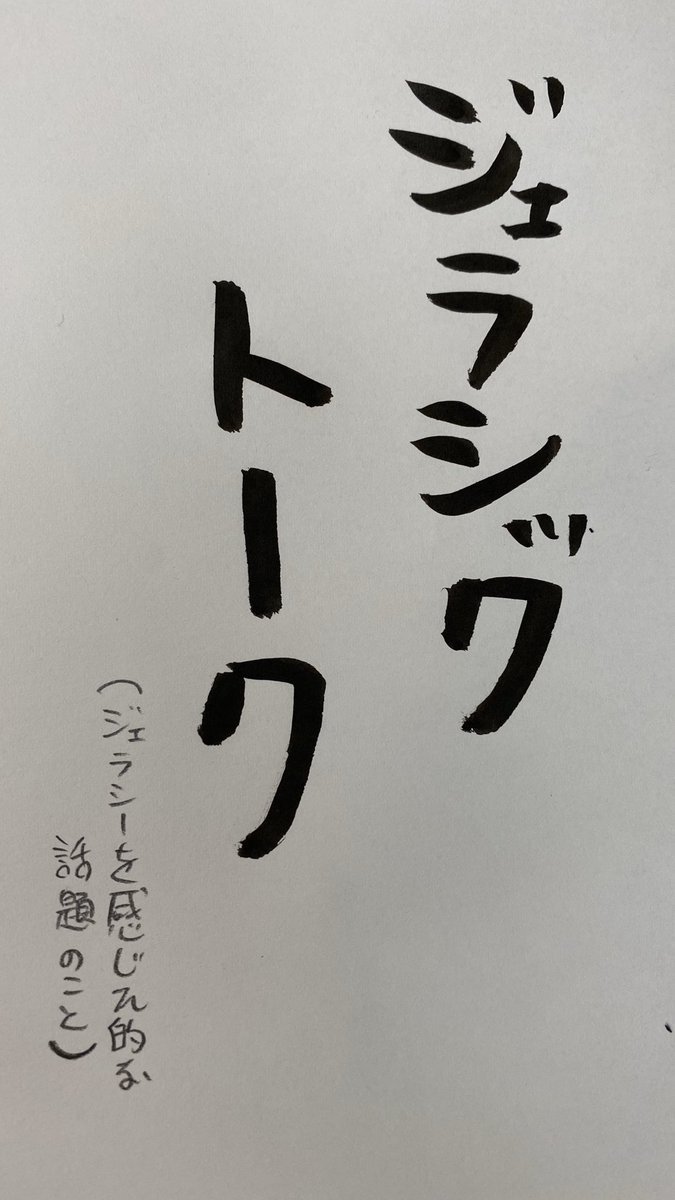 ジェラシック
トーク
(ジェラシーを感じた的な
話題のこと)